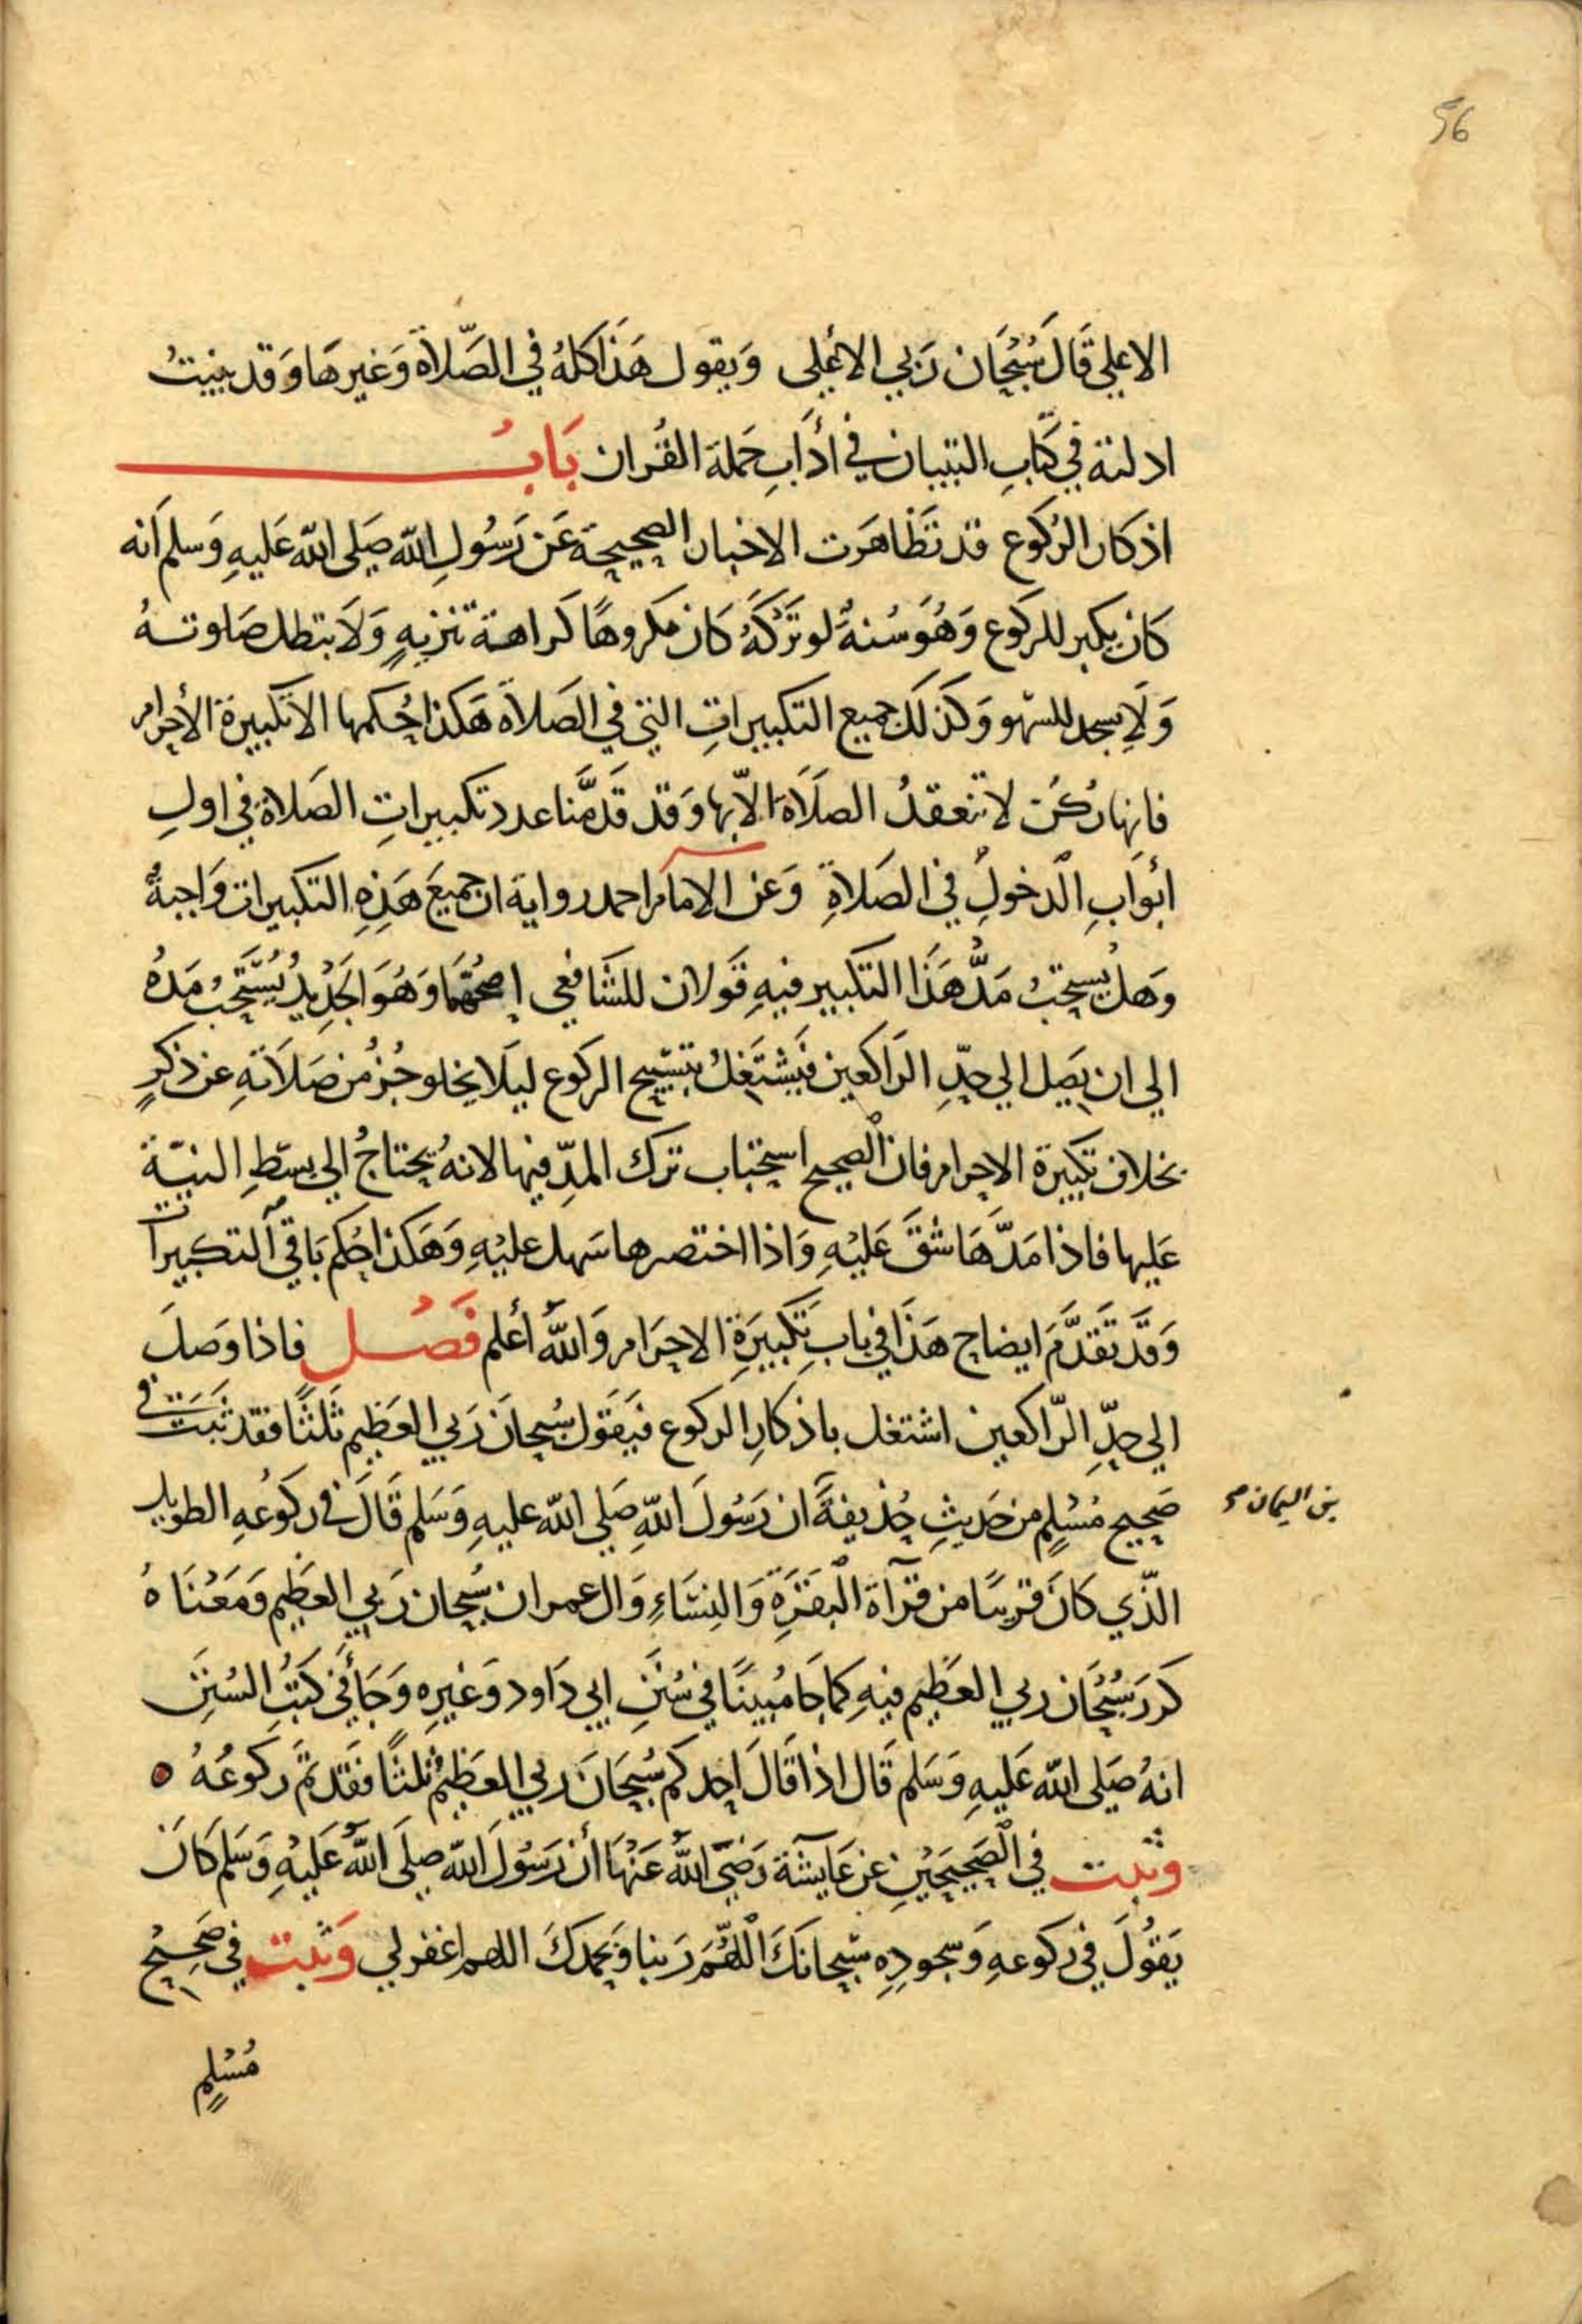 56
الاعلي قَالَ سُبْحَان رَبي الاعْلى وَيقول هَذَا كلهُ في الصَّلاَة وَغيرهَا وَقد بينتُ
ادلته في كتَابِ التبيان في ادَابِ حَملة القُران بَابُ
اذكار الرُكوع قد تَظَاهَرَت الاخبار الصحيحة عَن رَسُولِ الله صَلى الله عَليهِ وَسلم اَنه
كان يكبر للركَوع وَهُوَ سُنةٌ لو تَرَكَهُ كَان مكروهًا كَراهة تنزيهٍ وَلَا بتطل صَلوتهُ
وَلَا يسجد للسّهو وَكذلكَ جميع التكبيراتِ التي في الصَلاَة هَكذا حُكمها الا تكبيرة الأحرام
فانها رُكنٌ لا تنعقدُ الصلاَة الّا بها وَقد قَدمَّنا عدد تكبيراتِ الصَلاة في اولِ
ابْوَابِ الدخولِ في الصَلاةِ وَعن الامام احمد رواية ان جميعَ هَذِهِ التكبيرات وَاجبةٌ
وَهل يُسِتحبُ مَدُّ هَذَا التكبير فيهِ قَولان للشَافعي اصحُهُمَا وَهُوَ الجَدِيدُ يُسْتَحَبُ مَدهُ
الي ان يَصِل الي حَدِّ الرَاكعين فَيَشْتَغِلُ بتسْبيحِ الركَوع ليلَا يخلو جُزٌ من صَلاَتهِ عن ذكرٍ
بخلاف تكبيرة الاحرام فان الصحيح استحباب ترك المدِّ فيها لانهُ يحتاجُ الي بسَطِ النيّة
عَليها فاذا مَدَّهَا شَقَّ عَليْهِ وَاذا اختصرها سَهل عليْهِ وَهَكذا حُكم بَاقي التكبيرات
وَقَد تَقَدَّمَ ايضاح هَذَا في بابِ تَكبيَرَةِ الاحرَام وَاللهُ أعْلم فَصْل فاذا وَصَلَ
الي حدِّ الرّاكعين اشتغل باذكارِ الركوع فيَقول سُبحانَ رَبي العَظيم ثَلثًا فقد ثَبَتَ في
صَحيح مُسْلمٍ من حَديثِ حُذيفةَ ان رَسُولَ اللهِ صَلى الله عليهِ وَسَلم قَالَ في ركَوُعهِ الطويل
بن اليمان صح
الّذي كَانَ قريبًا من قرآة البَقَرَةِ وَالنِسَاءِ وَال عمران سُبحان رَبي العَظيم وَمَعْنَاهُ
كَررَ سُبْحَان ربي العَظيم فيهِ كمَا جَا مُبينًا في سُنَنِ ابي دَاود وَغيرِه وَجَاءَ في كتبُ السُنَنِ
انهُ صَلى الله عَليهِ وَسَلم قَال اذا قَالَ احدكم سُبحَانَ ربي العَظيمْ ثلثًا فقَد تمَّ ركَوعُهُ ٥
وثبت في الصَحيحَيْنِ عن عَايشَة رَضيَ اللهُ عَنْهَا أن رَسُولَ الله صلَى اللهُ عَليْهِ وَسَلم كَانَ
يَقُولَ في ركوعهِ وَسجودِهِ سُبحانَكَ اللّهمَّ رَبنا وَبحمدكَ اللهم اغفر لي وَثبت في صَحيْح
مُسْلمٍ